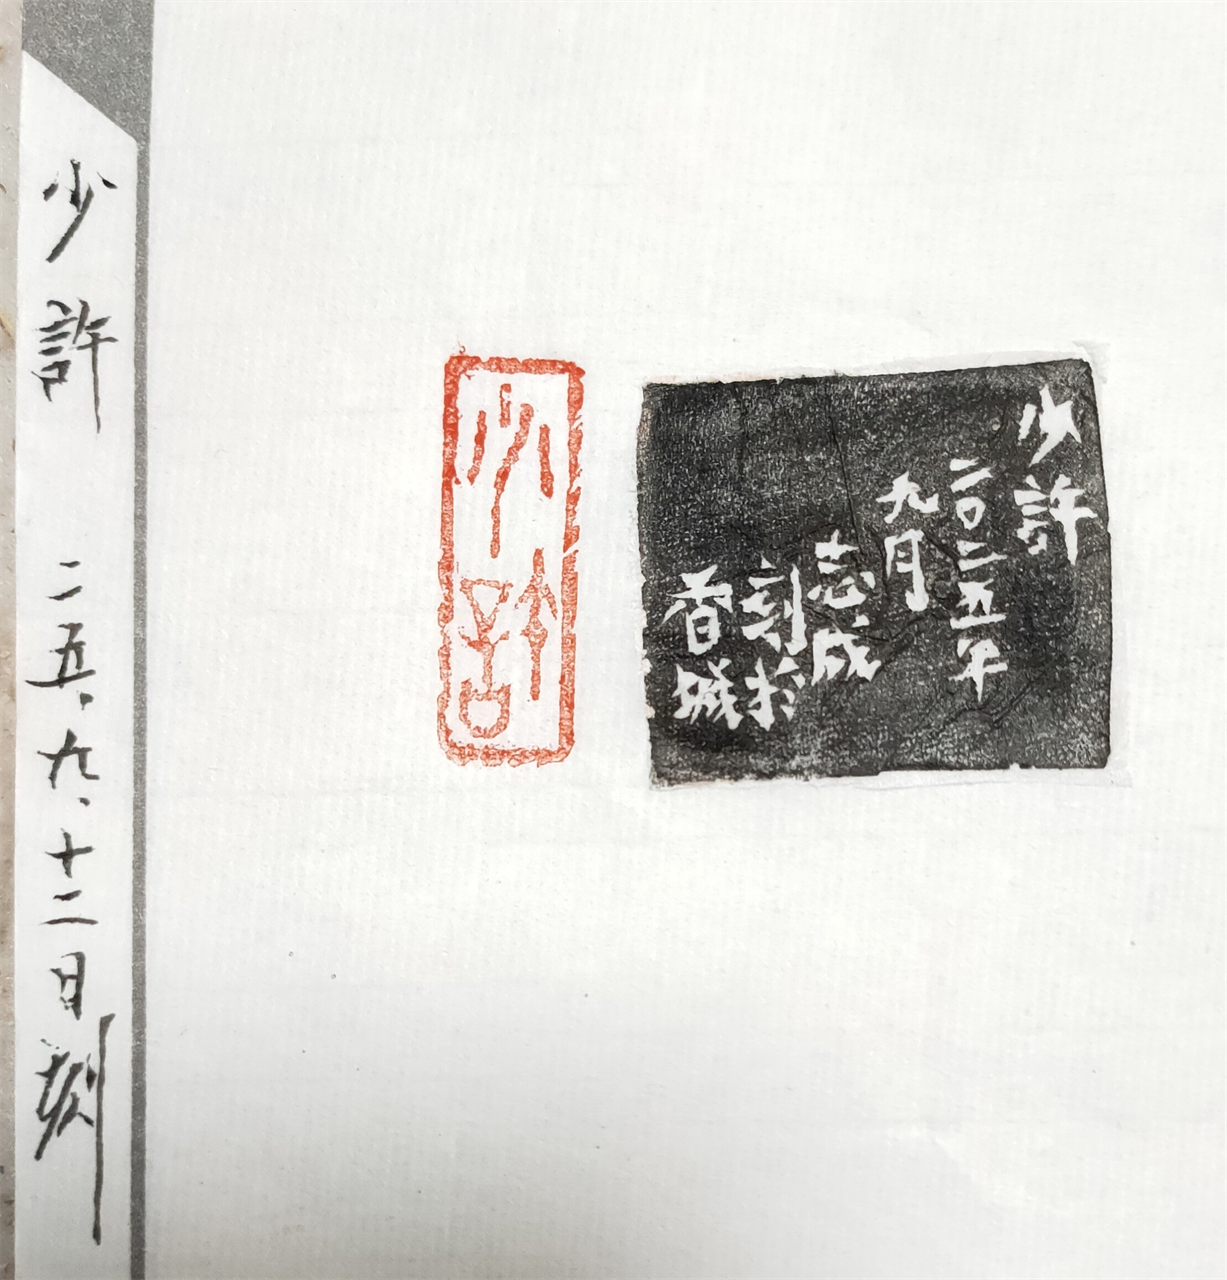 少許
二〇二五年
九月
志成
刻於
香城
少許
少許 二五、九、十二日刻